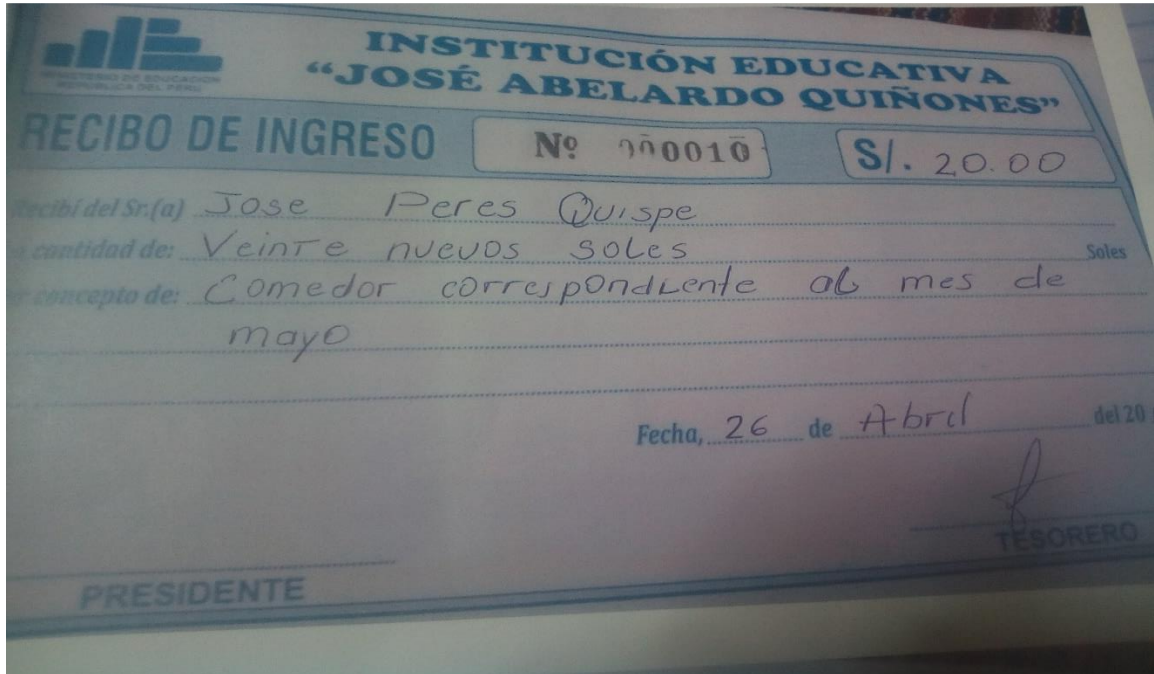 INSTITUCIÓN EDUCATIVA
MINISTERIO DE EDUCACIÓN
REPÚBLICA DEL PERÚ
“JOSÉ ABELARDO QUIÑONES”
RECIBO DE INGRESO Nº 000010 S/. 20.00
Recibí del Sr.(a) Jose Peres Quispe
cantidad de: Veinte nuevos soles Soles
concepto de: Comedor correspondiente al mes de
mayo
Fecha, 26 de Abril del 20
TESORERO
PRESIDENTE